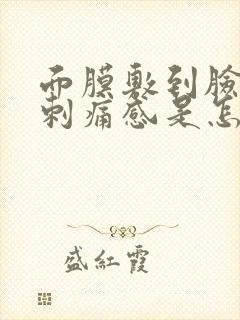 而膜敷到臉
刺痛感是怎
盛紅霞